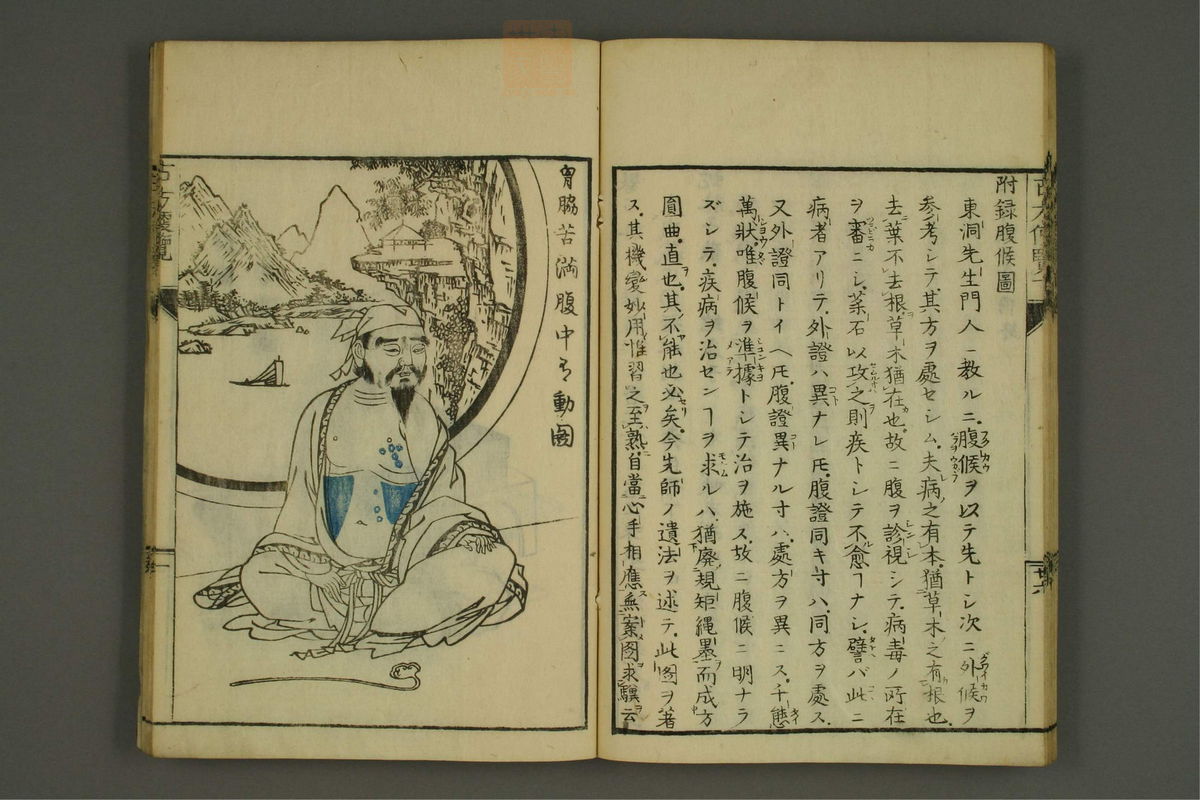 附録腹候圖
東洞先生門人ニ教ルニ腹候ヲ以テ先トシ次ニ外候ヲ
参考シテ其方ヲ處セシム夫病之有本猶草木之有根也
去葉不去根草木猶在也故ニ腹ヲ診視シテ病毒ノ所在
ヲ審ニシ薬石以攻之則疾トシテ不愈ヿナシ譬バ此ニ
病者アリテ外證ハ異ナレ𪜈腹證同キ寸ハ同方ヲ處ス
又外證同トイヘ𪜈腹證異ナル寸ハ處方ヲ異ニス千態
萬狀唯腹候ヲ準據トシテ治ヲ施ス故ニ腹候ニ明ナラ
ズシテ疾病ヲ治センヿヲ求ルハ猶廃規矩縄墨而成方
圓曲直也其不能也必矣今先師ノ遺法ヲ述テ此圖ヲ著
ス其機變妙用惟習之至熟自當心手相應無案图求驥云
胷脇苦満腹中有動圖